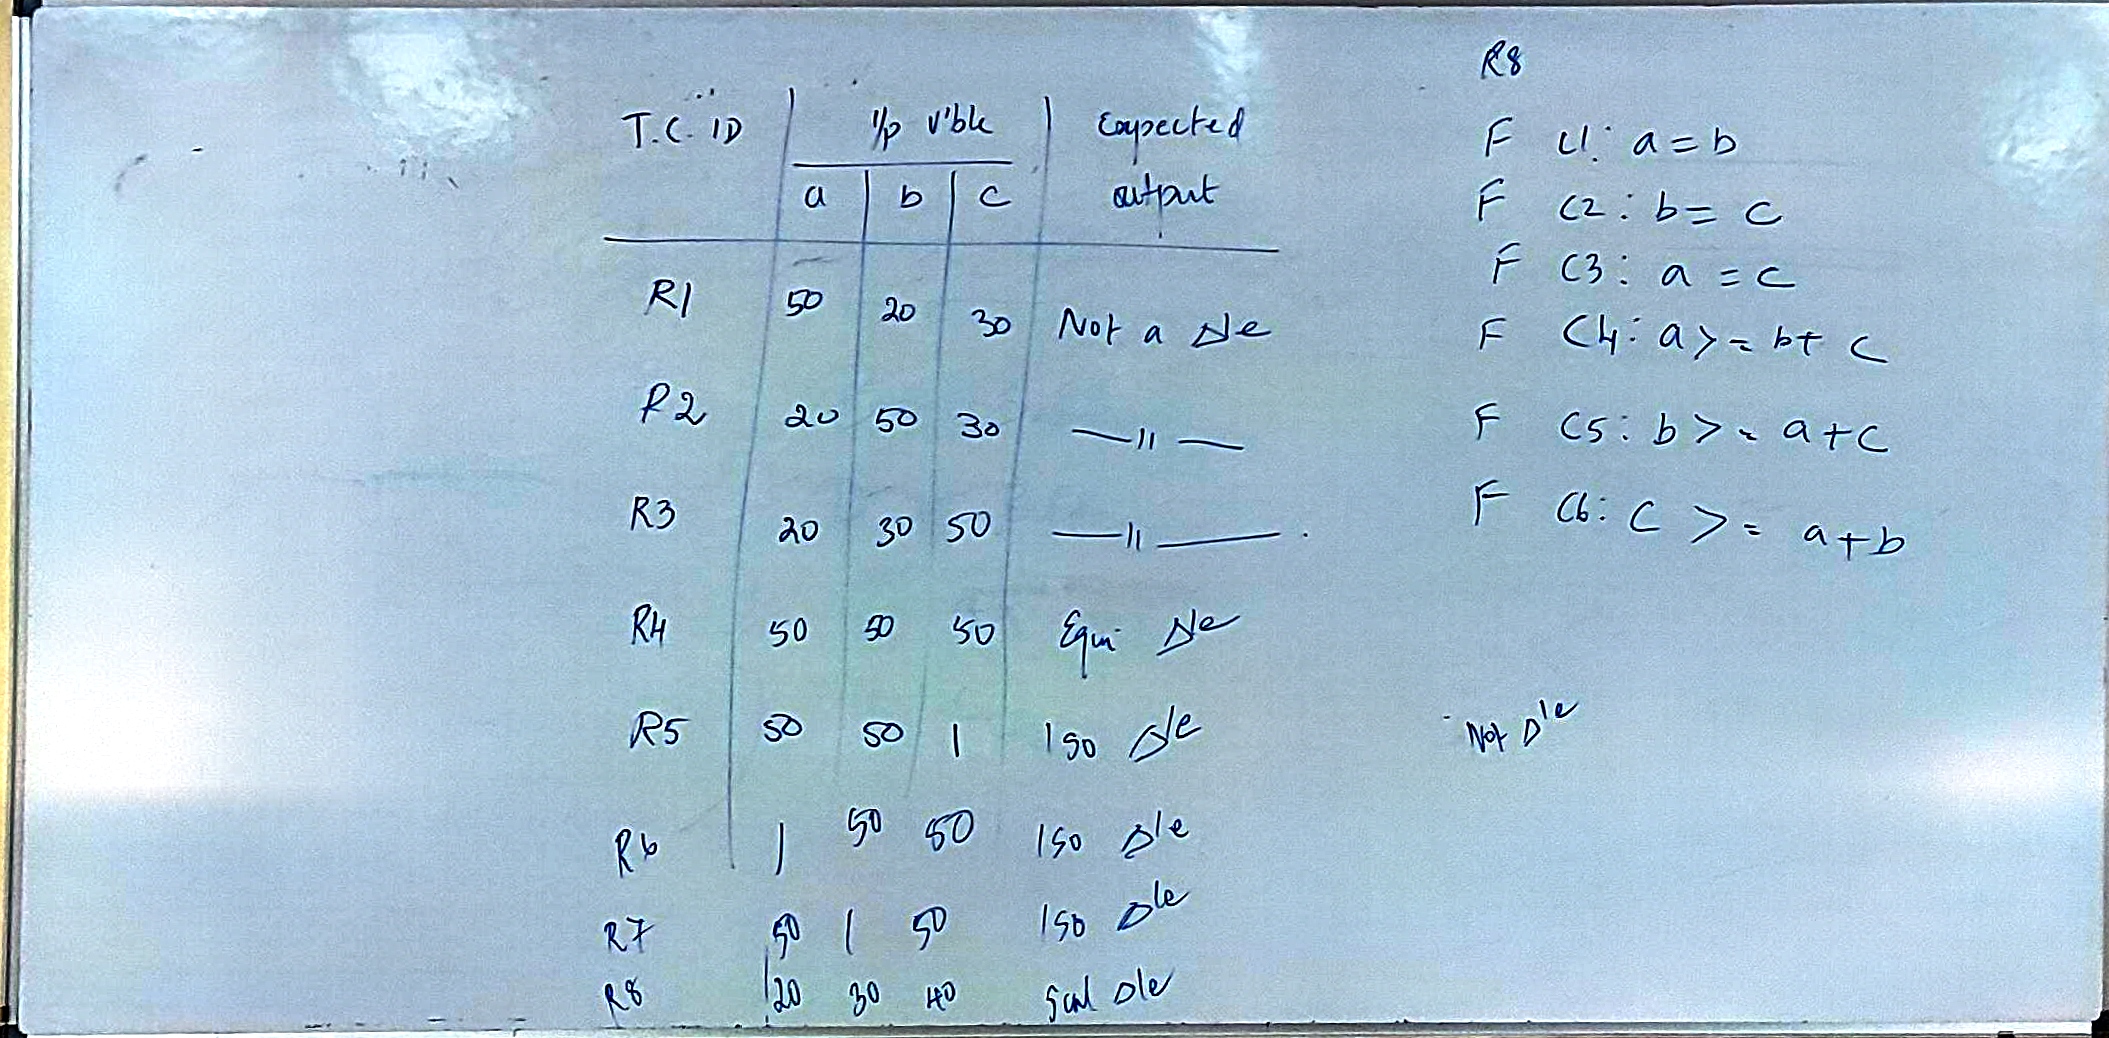 T.C. ID i/p v'ble Expected
a b c output
R1 50 20 30 Not a Δle
R2 20 50 30 —11—
R3 20 30 50 —11—
R4 50 50 50 Equi Δle
R5 50 50 1 Iso Δle
R6 1 50 50 Iso Δle
R7 50 1 50 Iso Δle
R8 20 30 40 Scal Δle
R8
F C1: a = b
F C2: b = c
F C3: a = c
F C4: a >= b+c
F C5: b >= a+c
F C6: c >= a+b
Not Δle